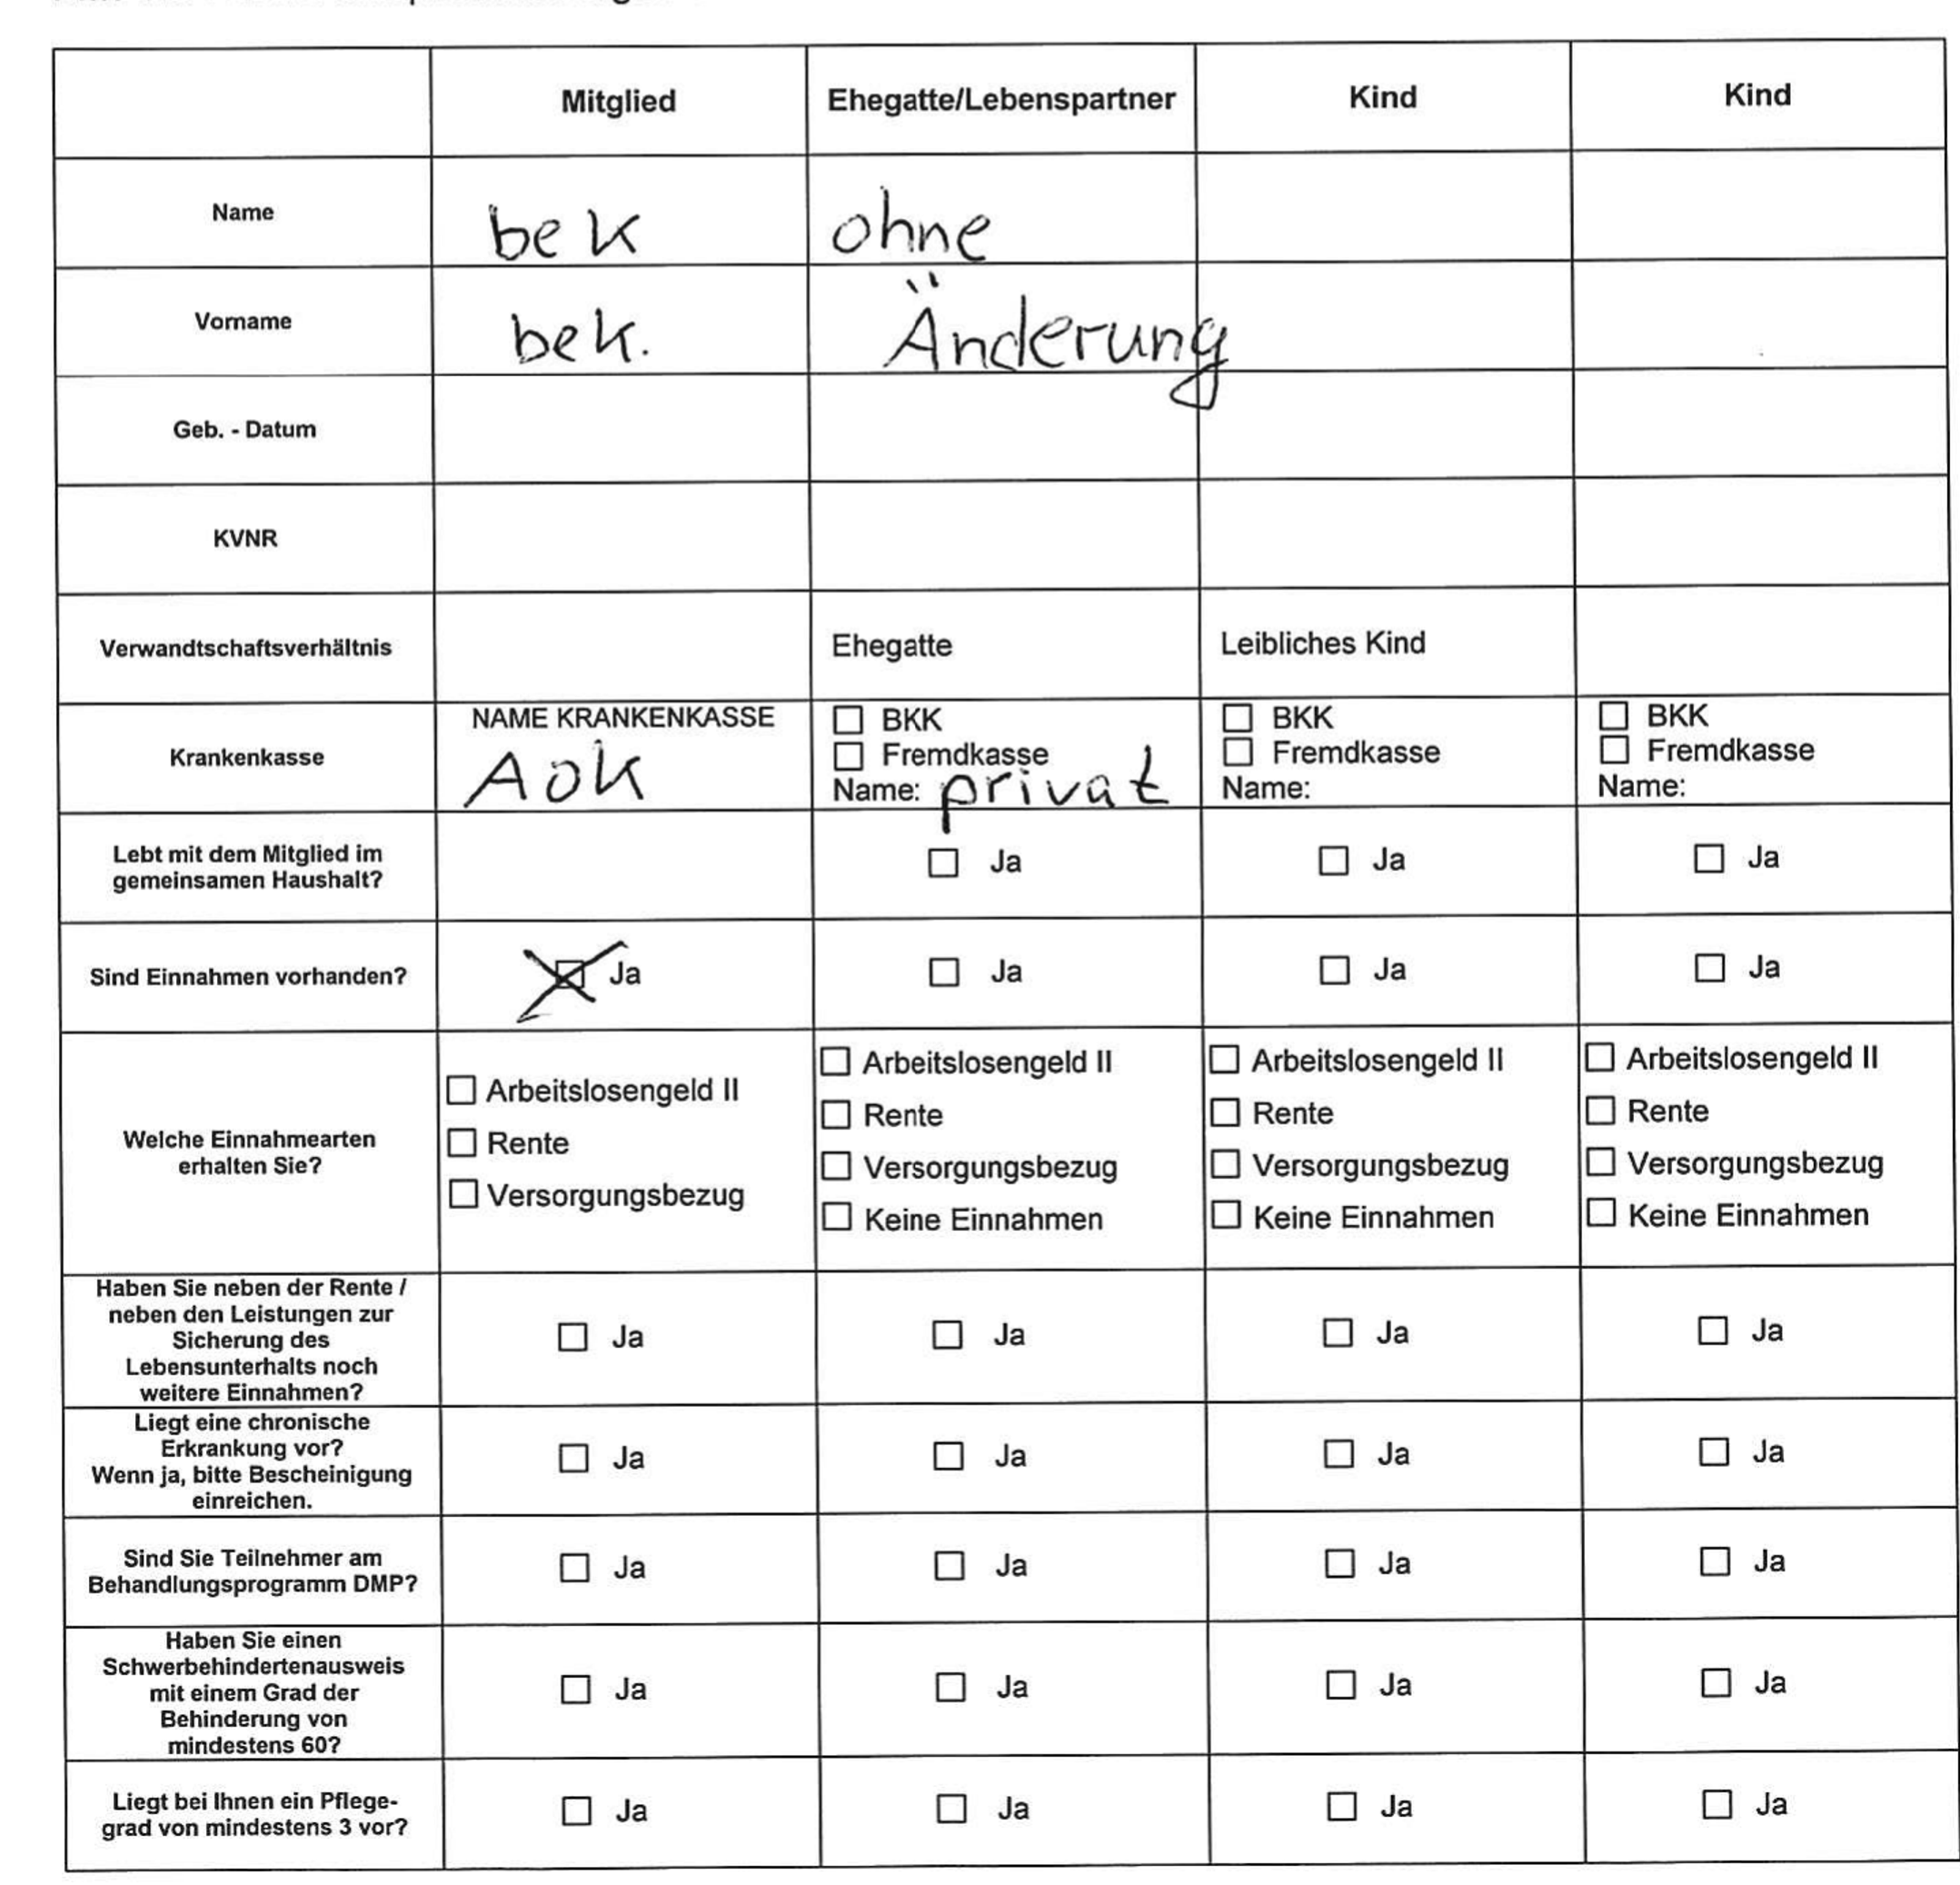 Mitglied Ehegatte/Lebenspartner Kind Kind
Name bek ohne
Vorname bek. Änderung
Geb. - Datum
KVNR
Verwandtschaftsverhältnis Ehegatte Leibliches Kind
Krankenkasse
NAME KRANKENKASSE
AOK
BKK
Fremdkasse
Name: privat
BKK
Fremdkasse
Name:
BKK
Fremdkasse
Name:
Lebt mit dem Mitglied im
gemeinsamen Haushalt?
Ja Ja Ja
Sind Einnahmen vorhanden? Ja Ja Ja Ja
Welche Einnahmearten
erhalten Sie?
Arbeitslosengeld II
Rente
Versorgungsbezug
Arbeitslosengeld II
Rente
Versorgungsbezug
Keine Einnahmen
Arbeitslosengeld II
Rente
Versorgungsbezug
Keine Einnahmen
Arbeitslosengeld II
Rente
Versorgungsbezug
Keine Einnahmen
Haben Sie neben der Rente /
neben den Leistungen zur
Sicherung des
Lebensunterhalts noch
weitere Einnahmen?
Ja Ja Ja Ja
Liegt eine chronische
Erkrankung vor?
Wenn ja, bitte Bescheinigung
einreichen.
Ja Ja Ja Ja
Sind Sie Teilnehmer am
Behandlungsprogramm DMP?
Ja Ja Ja Ja
Haben Sie einen
Schwerbehindertenausweis
mit einem Grad der
Behinderung von
mindestens 60?
Ja Ja Ja Ja
Liegt bei Ihnen ein Pflege-
grad von mindestens 3 vor?
Ja Ja Ja Ja